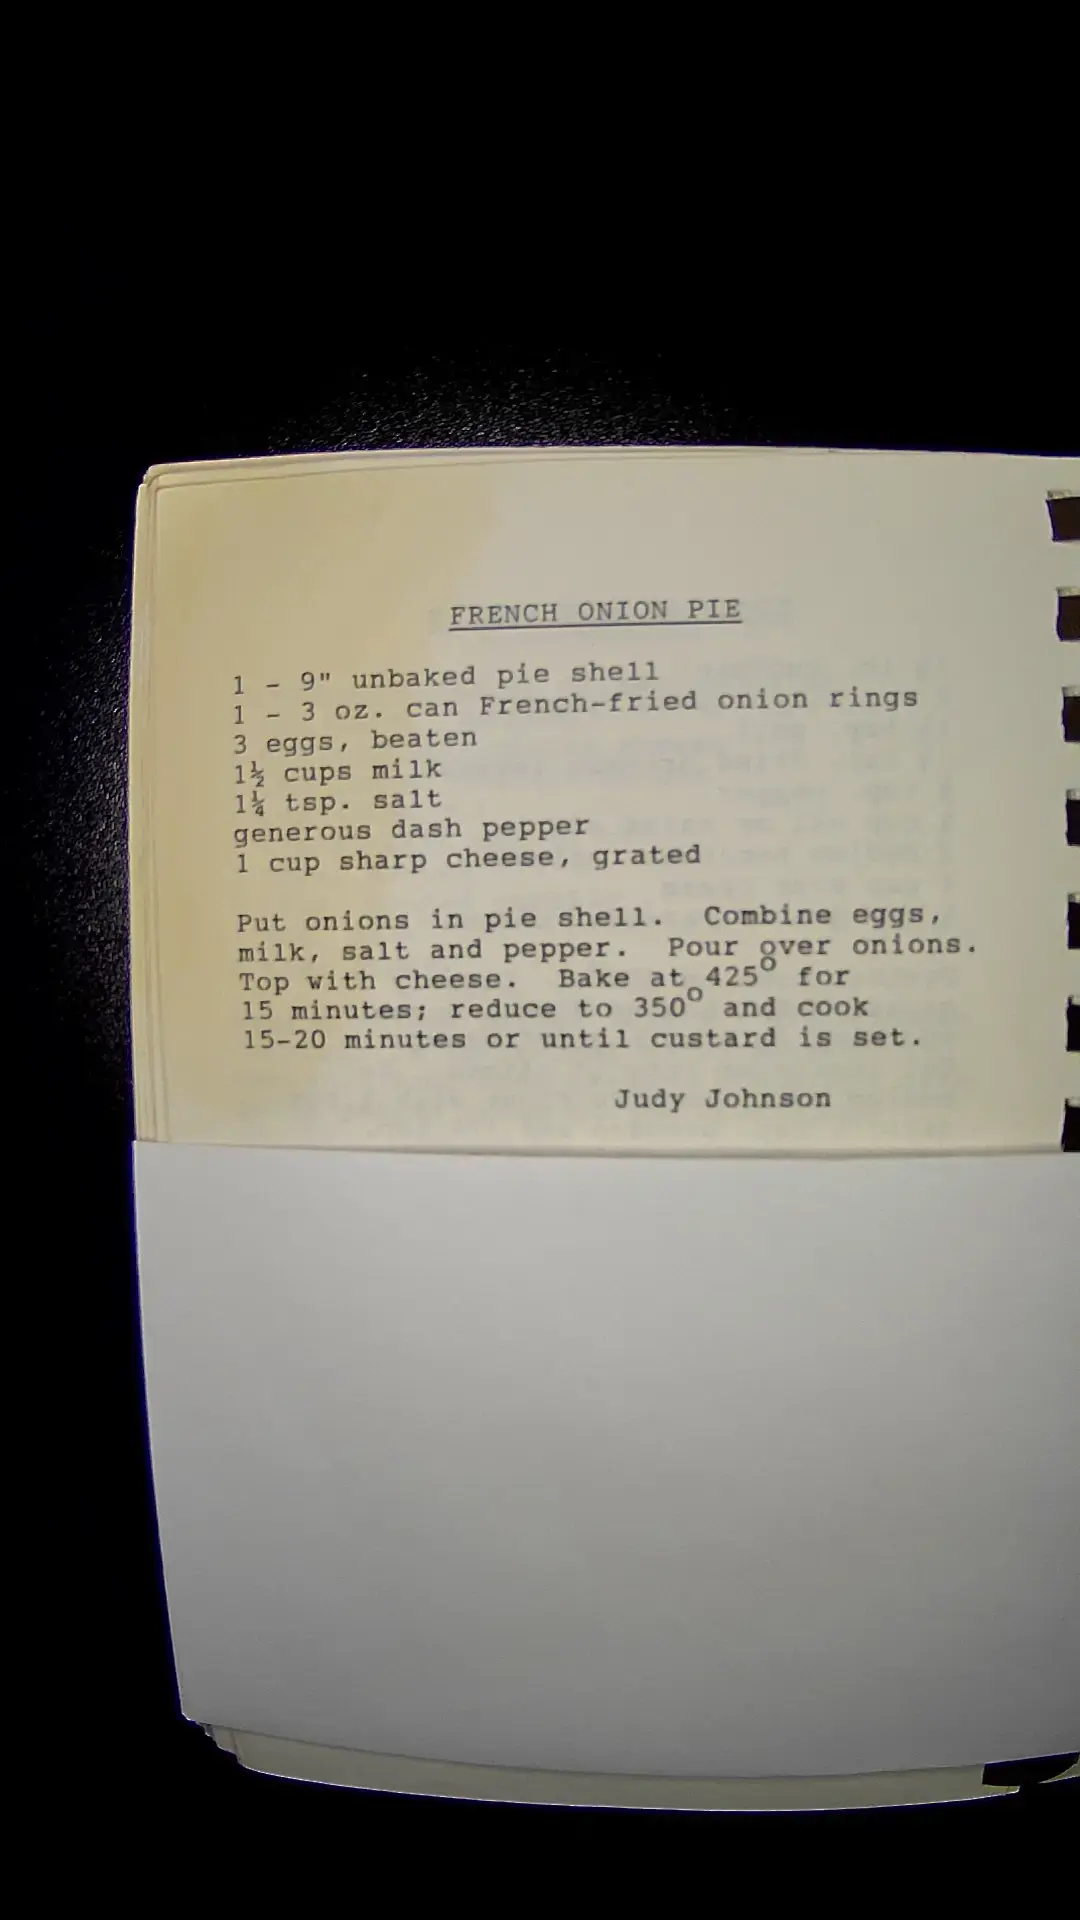 FRENCH ONION PIE
1 - 9" unbaked pie shell
1 - 3 oz. can French-fried onion rings
3 eggs, beaten
1½ cups milk
1¼ tsp. salt
generous dash pepper
1 cup sharp cheese, grated
Put onions in pie shell.  Combine eggs,
milk, salt and pepper.  Pour over onions.
Top with cheese.  Bake at 425° for
15 minutes; reduce to 350° and cook
15-20 minutes or until custard is set.
Judy Johnson